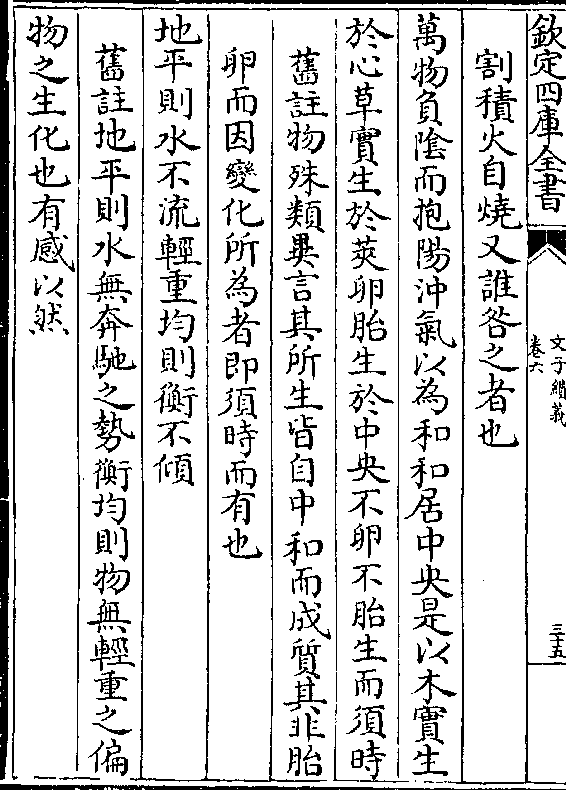 欽定四庫全書
文子纘義
卷六
三五
割積火自燒又誰咎之者也
萬物負陰而抱陽沖氣以為和和居中央是以木實生
於心草實生於莢卵胎生於中央不卵不胎生而須時
舊註物殊類異言其所生皆自中和而成質其非胎
卵而因變化所為者即須時而有也
地平則水不流輕重均則衡不傾
舊註地平則水無奔馳之勢衡均則物無輕重之偏
物之生化也有感以然